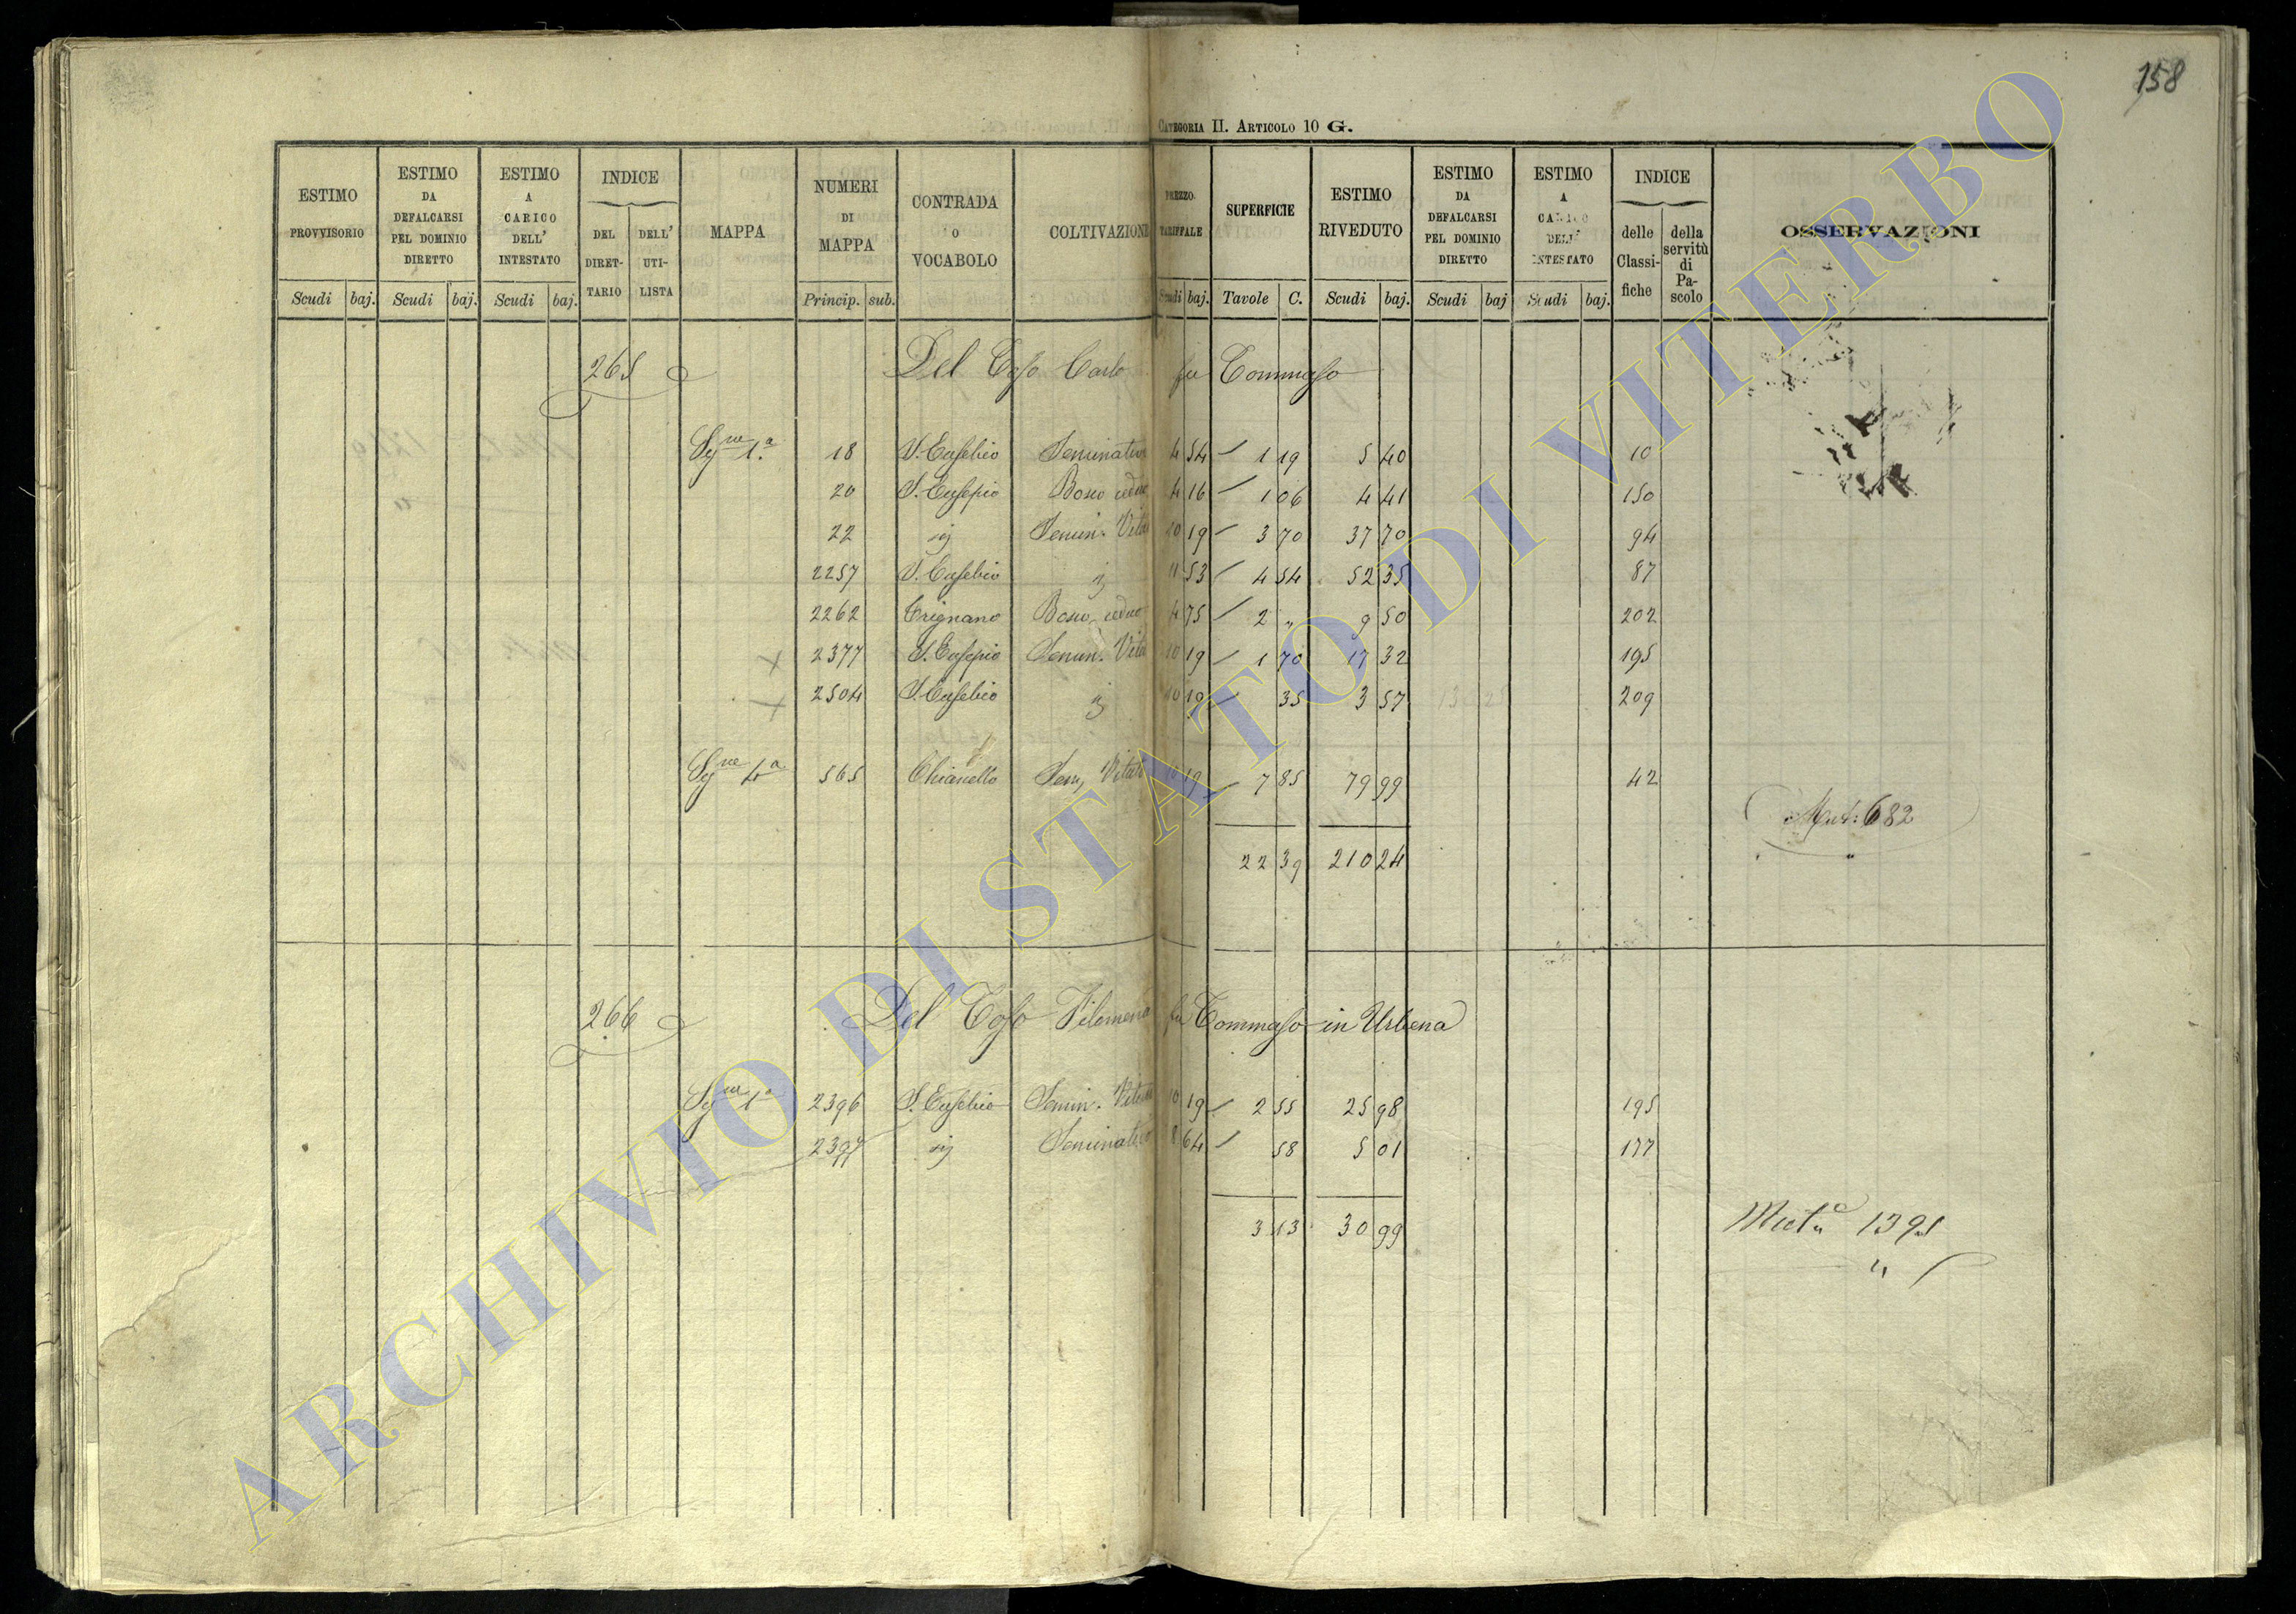 158
CATEGORIA II. ARTICOLO 10 G.
ESTIMO PROVVISORIO Scudi baj.
ESTIMO DA DEFALCARSI PEL DOMINIO DIRETTO Scudi baj.
ESTIMO A CARICO DELL' INTESTATO Scudi baj.
INDICE DEL DIRET-TARIO DELL' UTI-LISTA
MAPPA
NUMERI DI MAPPA Princip. sub.
CONTRADA O VOCABOLO
COLTIVAZIONE
PREZZO TARIFFALE Scudi baj.
SUPERFICIE Tavole C.
ESTIMO RIVEDUTO Scudi baj.
ESTIMO DA DEFALCARSI PEL DOMINIO DIRETTO Scudi baj
ESTIMO A CARICO DELL' INTESTATO Scudi baj.
INDICE delle Classi-fiche della servitù di Pa-scolo
OSSERVAZIONI
265 Del Toso Carlo fu Tommaso
Sg.ne 1a 18 S. Eusebio Seminativo 4 54 1 19 5 40 10
20 S. Eusepio Bosco ceduo 4 16 1 06 4 41 150
22 id Semin. Vitato 10 19 3 70 37 70 94
2257 S. Eusebio id 11 53 4 54 52 35 87
2262 Trignano Bosco ceduo 4 75 2 " 9 50 202
2377 S. Eusepio Semin. Vitato 10 19 1 70 17 32 195
2504 S. Eusebio id 10 19 35 3 57 209
Sg.ne 4a 565 Chianello Sem. Vitato 10 19 7 85 79 99 42
Mut: 682
22 39 210 24
266 Del Toso Filomena fu Tommaso in Urbena
Sg.ne 1a 2396 S. Eusebio Semin. Vitato 10 19 2 55 25 98 195
2397 id Seminativo 8 64 58 5 01 177
3 13 30 99
ARCHIVIO DI STATO DI VITERBO